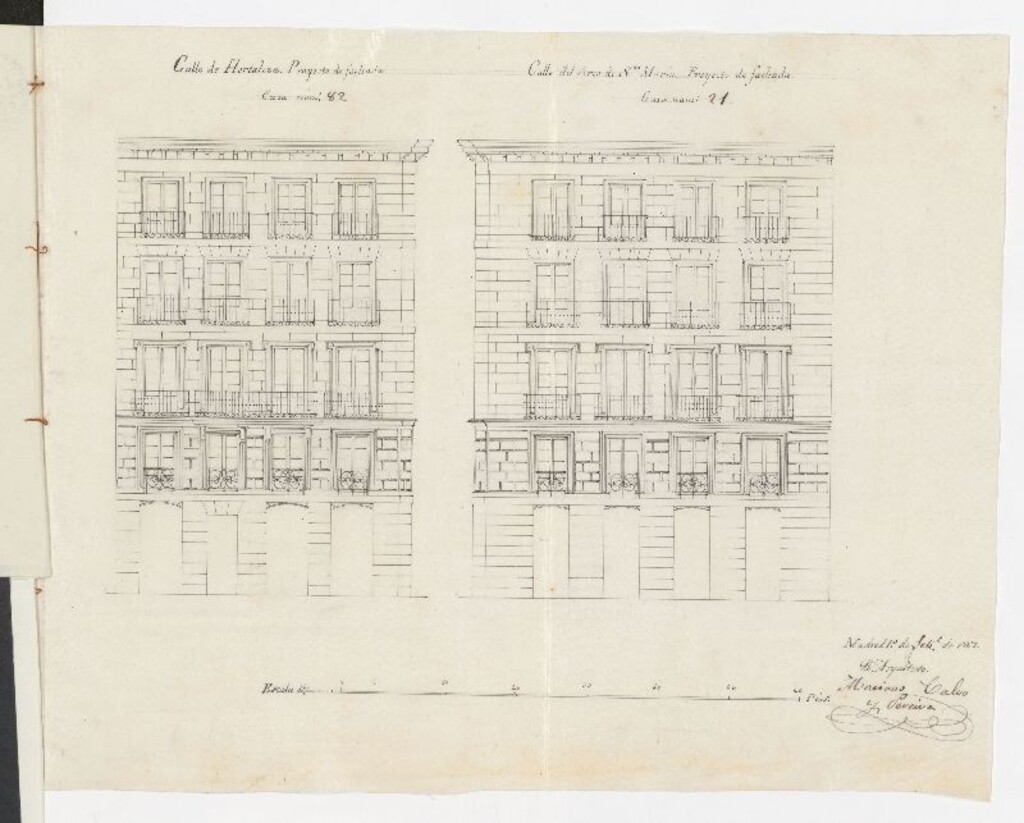 Calle de Hortaleza. Proyecto de fachada
Casa num.º 82
Calle del Arco de Nª Sª María. Proyecto de fachada
Casa num.º 21.
Escala de
Pies.
Madrid 1º de de
El Arquitecto.
Mariano Calvo
y Pereira